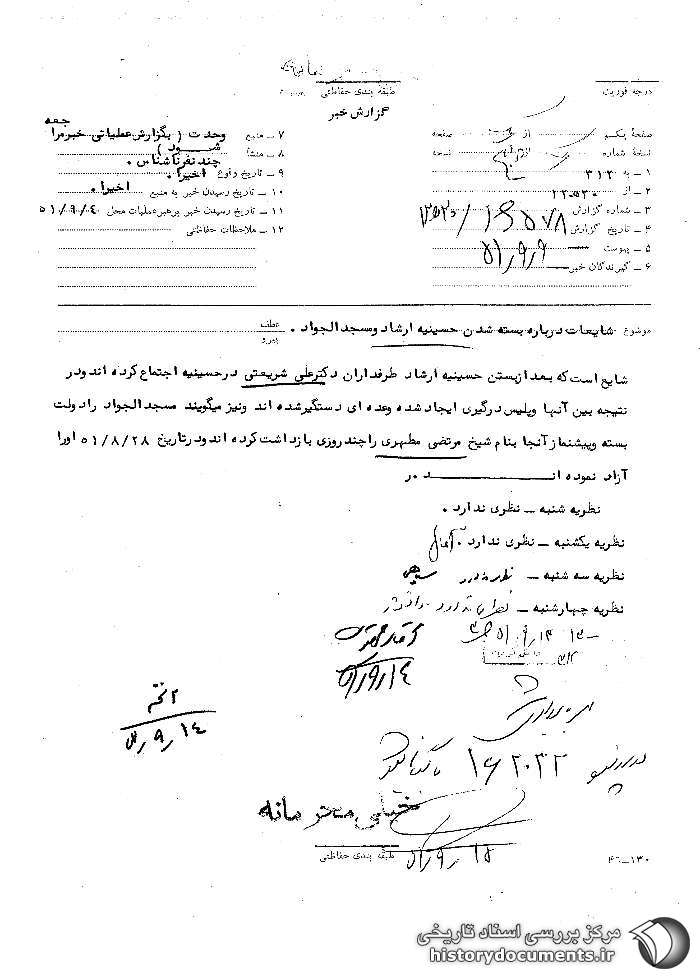 درجه فوریت
طبقه بندی حفاظتی
گزارش خبر
صفحه یکم از صفحه
نسخه شماره از نسخه
۱ – به ۳۱۲
۲ – از
۳ – شماره گزارش
۴ – تاریخ گزارش ۵۱/۹/۹
۵ – پیوست
۶ – گیرندگان خبر
جمعه
۷ – منبع وحدت ( بگزارش عطیاتی خبرمرا
۸ – منشأ شود )
چند نفر ناشناس .
۹ – تاریخ وقوع اخیرا .
۱۰ – تاریخ رسیدن خبر به منبع اخیرا .
۱۱ – تاریخ رسیدن خبر برهبر عملیات محل ۵۱/۹/۴
۱۲ – ملاحظات حفاظتی
موضوع شایعات درباره بسته شدن حسینیه ارشاد و مسجد الجواد .
عطف
پیرو
شایع است که بعد از بستن حسینیه ارشاد طرفداران دکتر علی شریعتی در حسینیه اجتماع کرده اند و در
نتیجه بین آنها و پلیس درگیری ایجاد شده و عده ای دستگیر شده اند و نیز میگویند مسجد الجواد را دولت
بسته و پیشنماز آنجا بنام شیخ مرتضی مطهری را چند روزی بازداشت کرده اند و در تاریخ ۵۱/۸/۲۸ او را
آزاد نموده انـــد . ر
نظریه شنبه – نظری ندارد .
نظریه یکشنبه – نظری ندارد .
نظریه سه شنبه – نظری ندارد
نظریه چهارشنبه – نظری ندارد
۵۱/۹/۱۴
۵۱/۹/۱۴
خیلی محرمانه
۵۱/۹/۱۵
طبقه بندی حفاظتی
۴۶–۱۳۰
مرکز بررسی اسناد تاریخی
historydocuments.ir